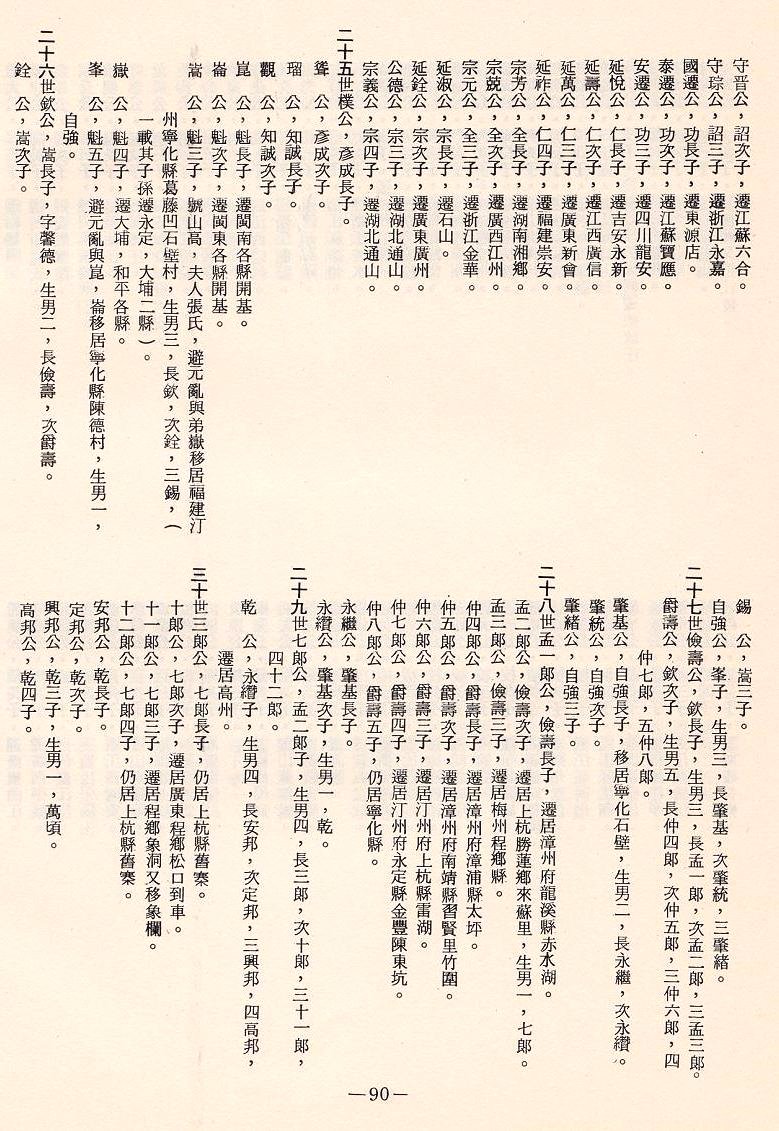 守晋公，詔次子，遷江蘇六合。
守琮公，詔三子，遷浙江永嘉。
國遷公，功長子，遷東源店。
泰遷公，功次子，遷江蘇寶應。
安遷公，功三子，遷四川龍安。
延悅公，仁長子，遷吉安永新。
延壽公，仁次子，遷江西廣信。
延萬公，仁三子，遷廣東新會。
延祚公，仁四子，遷福建崇安。
宗芳公，全長子，遷湖南湘鄉。
宗兢公，全次子，遷廣西江州。
宗元公，全三子，遷浙江金華。
延淑公，宗長子，遷石山。
延銓公，宗次子，遷廣東廣州。
公德公，宗三子，遷湖北通山。
宗義公，宗四子，遷湖北通山。
二十五世樸公，彥成長子。
聳　公，彥成次子。
瑠　公，知誠長子。
觀　公，知誠次子。
崑　公，魁長子，遷閩南各縣開基。
崙　公，魁次子，遷閩東各縣開基。
嵩　公，魁三子，號山高，夫人張氏，避元亂與弟嶽移居福建汀
州寧化縣葛藤凹石壁村，生男三，長欽，次銓，三錫，（
一載其子孫遷永定，大埔二縣）。
嶽　公，魁四子，遷大埔，和平各縣。
峯　公，魁五子，避元亂與崑，崙移居寧化縣陳德村，生男一，
自強。
二十六世欽公，嵩長子，字馨德，生男二，長儉壽，次爵壽。
銓　公，嵩次子。
錫　公，嵩三子。
自強公，峯子，生男三，長肇基，次肇統，三肇緒。
二十七世儉壽公，欽長子，生男三，長孟一郎，次孟二郎，三孟三郎。
爵壽公，欽次子，生男五，長仲四郎，次仲五郎，三仲六郎，四
仲七郎，五仲八郎。
肇基公，自強長子，移居寧化石壁，生男二，長永繼，次永纘。
肇統公，自強次子。
肇緒公，自強三子。
二十八世孟一郎公，儉壽長子，遷居漳州府龍溪縣赤水湖。
孟二郎公，儉壽次子，遷居上杭勝蓮鄉來蘇里，生男一，七郎。
孟三郎公，儉壽三子，遷居梅州程鄉縣。
仲四郎公，爵壽長子，遷居漳州府漳浦縣太坪。
仲五郎公，爵壽次子，遷居漳州府南靖縣習賢里竹圍。
仲六郎公，爵壽三子，遷居汀州府上杭縣雷湖。
仲七郎公，爵壽四子，遷居汀州府永定縣金豐陳東坑。
仲八郎公，爵壽五子，仍居寧化縣。
永繼公，肇基長子。
永纘公，肇基次子，生男一，乾。
二十九世七郎公，孟二郎子，生男四，長三郎，次十郎，三十一郎，
四十二郎。
乾　公，永纘子，生男四，長安邦，次定邦，三興邦，四高邦，
遷居高州。
三十世三郎公，七郎長子，仍居上杭縣舊寨。
十郎公，七郎次子，遷居廣東程鄉松口到車。
十一郎公，七郎三子，遷居程鄉象洞又移象欄。
十二郎公，七郎四子，仍居上杭縣舊寨。
安邦公，乾長子。
定邦公，乾次子。
興邦公，乾三子，生男一，萬頃。
高邦公，乾四子。
—90—